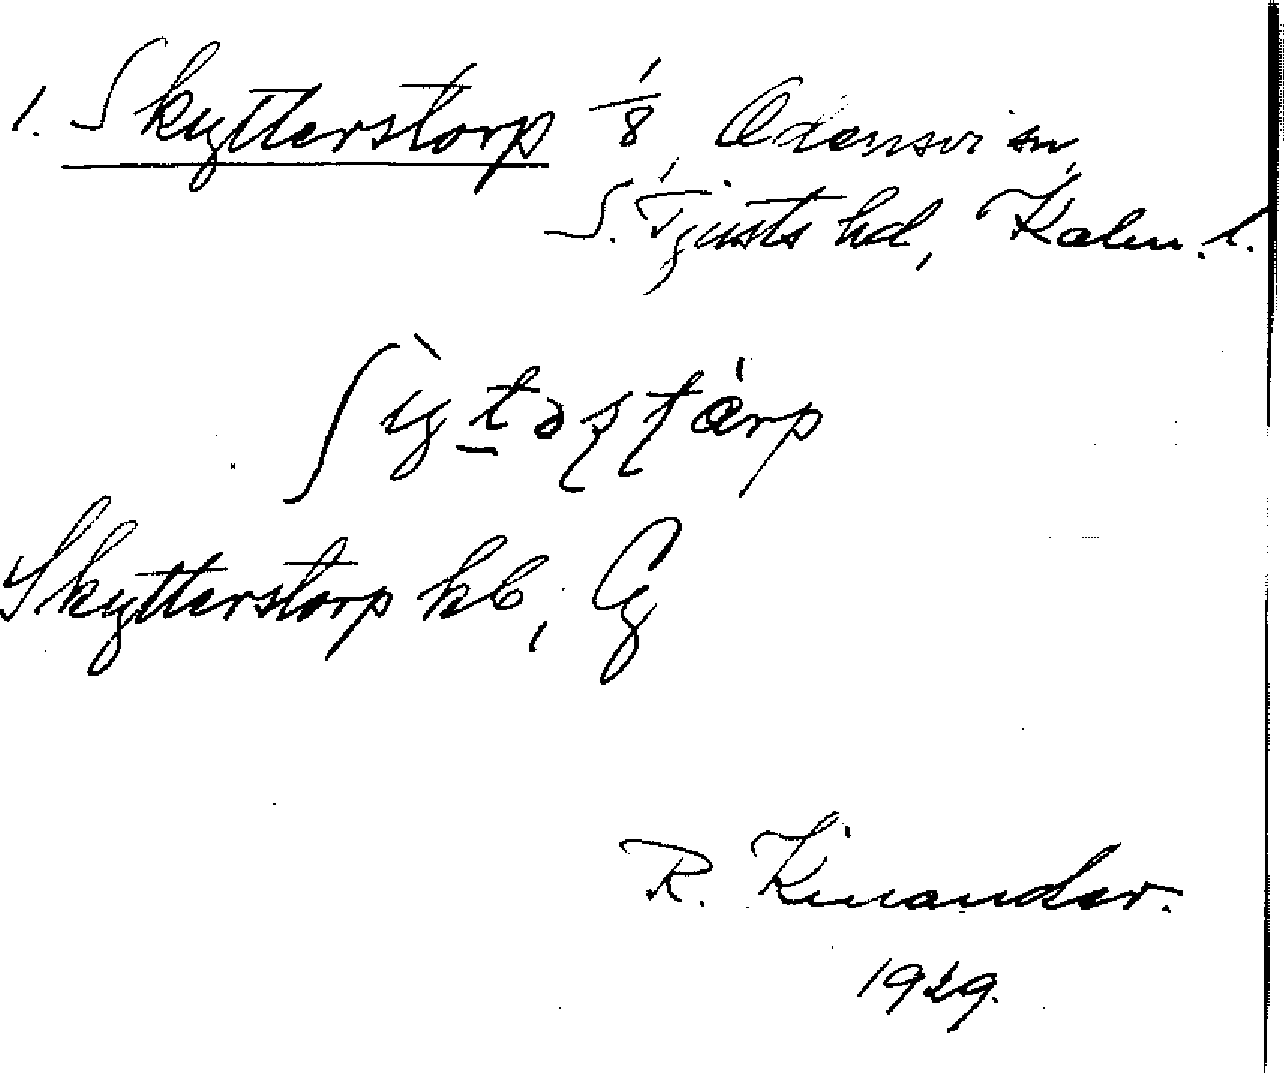 1. Skytterstorp 1/8, Odensvi sn,
S. Tjusts hd, Kalm. l.
Skytterstorp kb, Cg
R. Kinander.
1929.